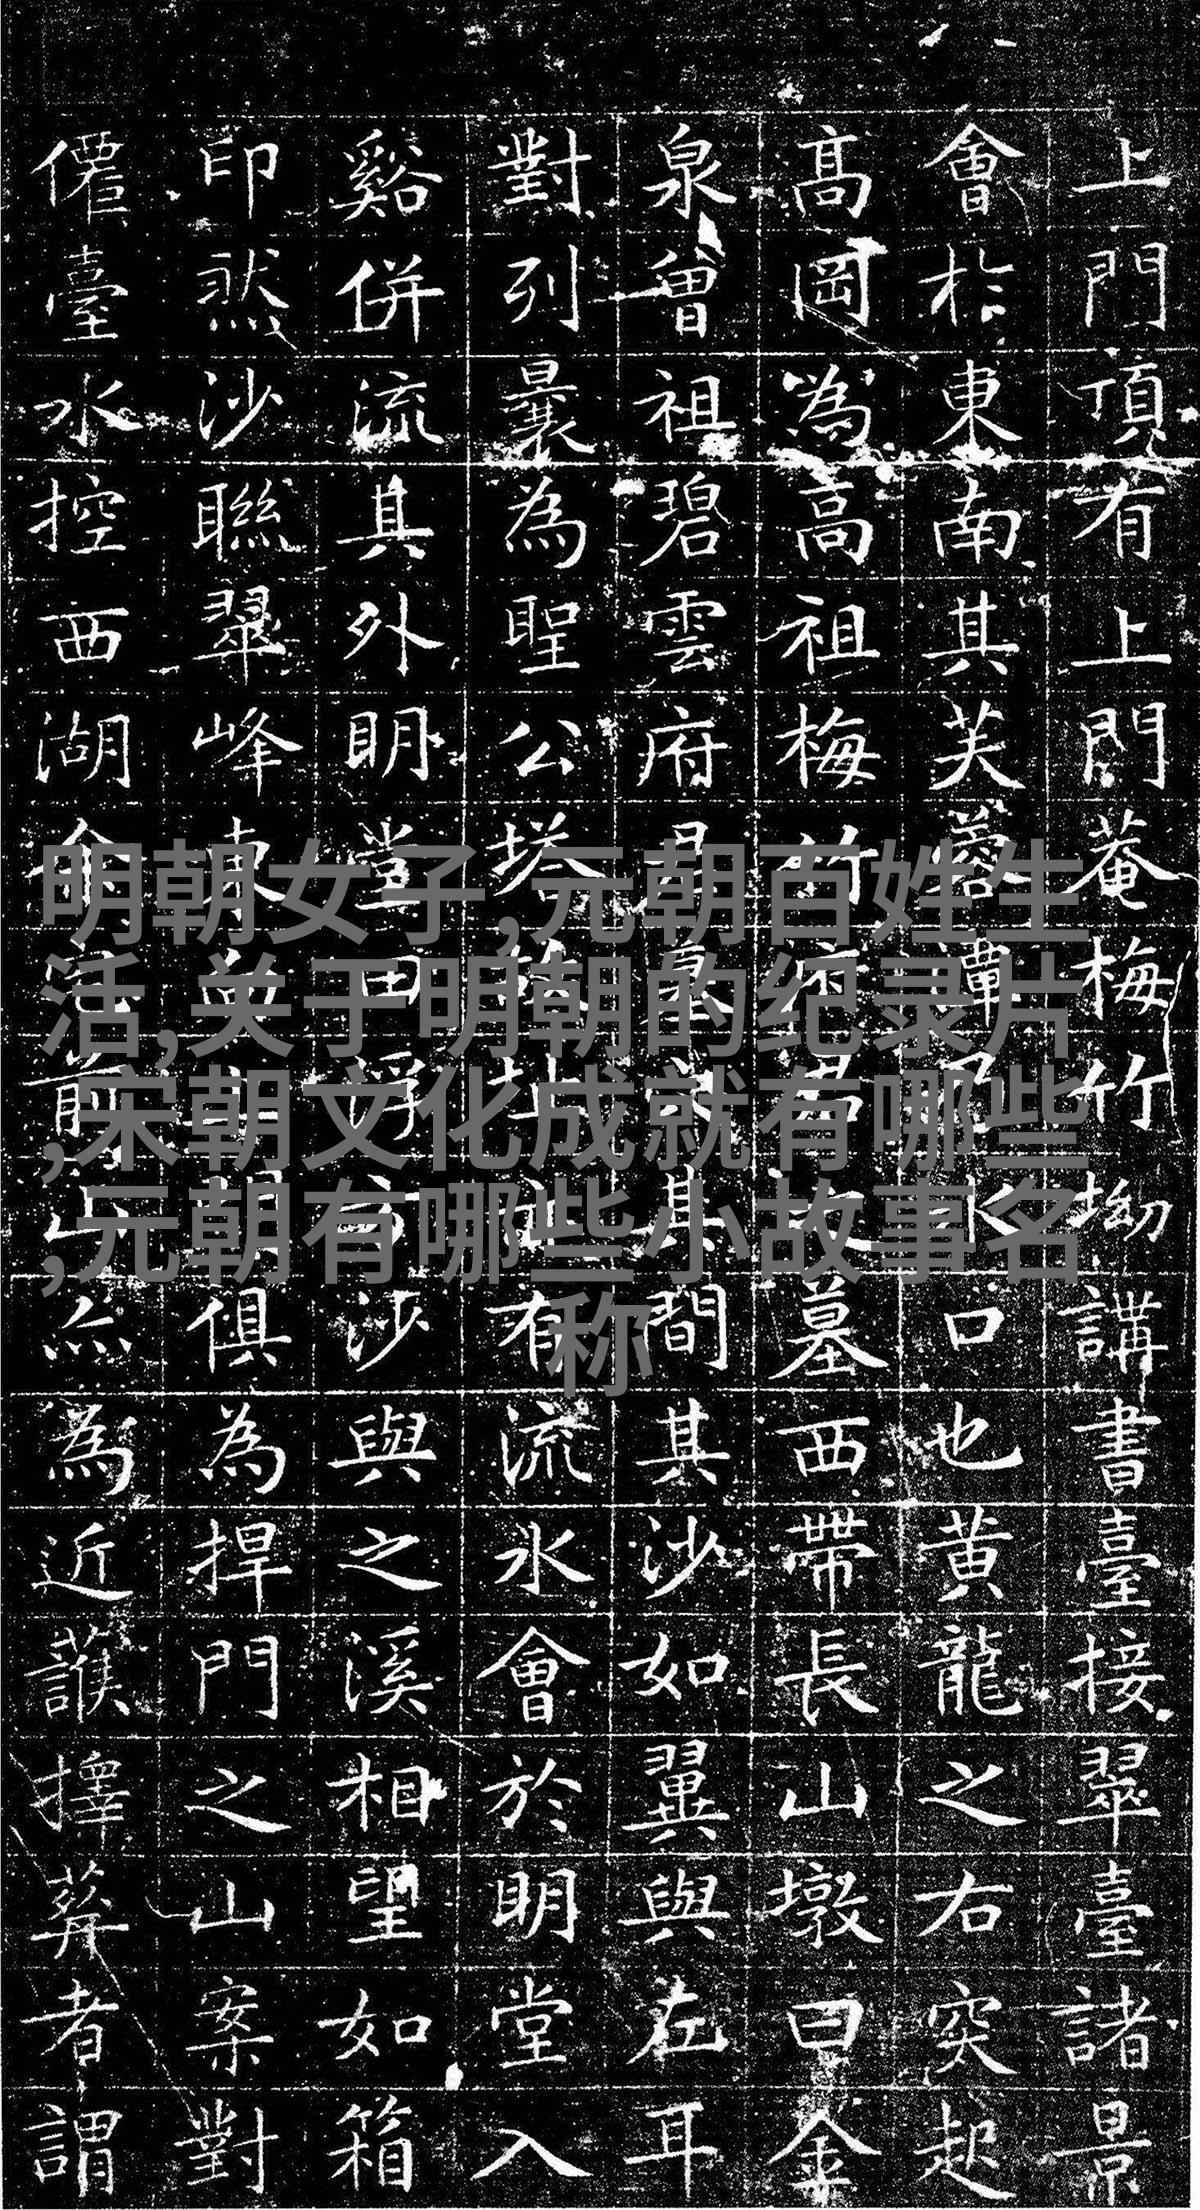 上門頂有上門菴梅竹坳講書臺接翠臺諸景
會扵東南其芙蓉潭水口也黃龍之右突起
髙岡為高祖梅竹府君墓西帶長山墩曰金
泉曾祖碧雲府墓其間其沙如翼與左耳
對列曩為聖公塔有流水會於明堂入
谿併流其外明堂田浮沙與之溪相望如箱
印然沙聯翠峰東俱為捍門之山案對
僊臺水控西湖前山亦為近護擇葬者謂
明朝女子,元朝百姓生
活,关于明朝的纪录片
,宋朝文化成就有哪些
,元朝有哪些小故事名
称